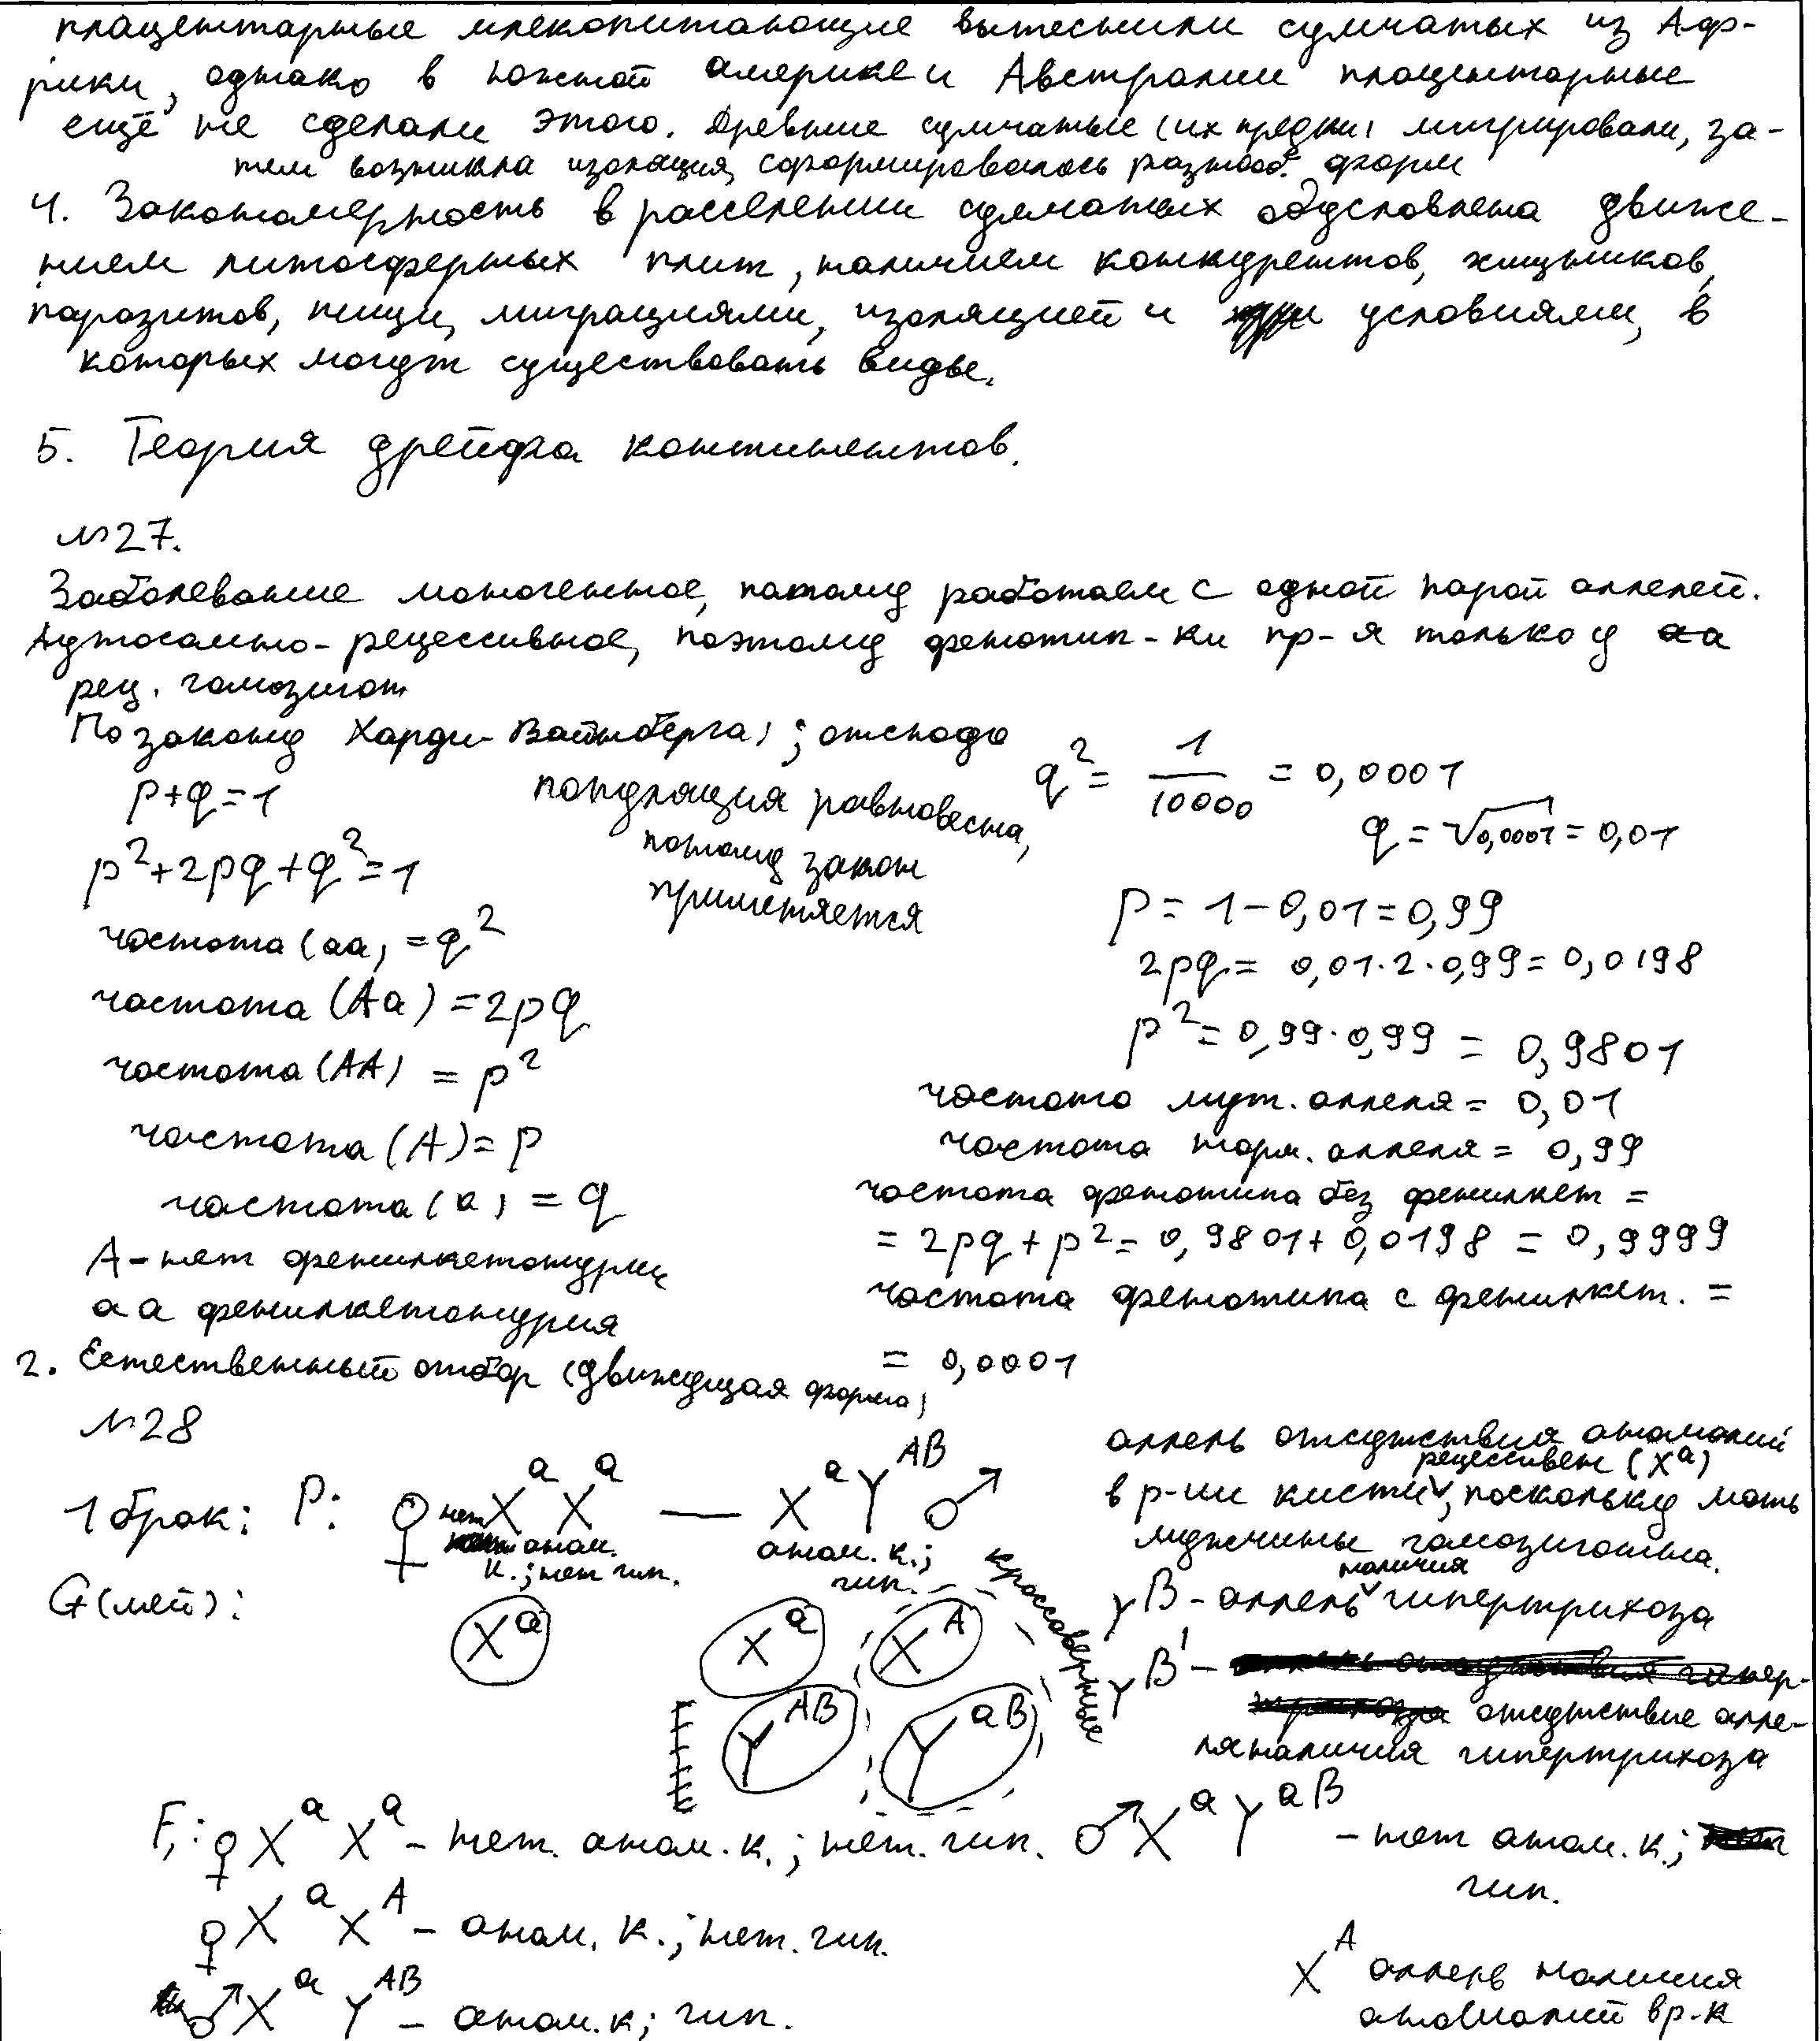 плацентарные млекопитающие вытеснили сумчатых из Аф-
рики, однако в Южной америке и Австралии плацентарные
ещё не сделали этого. Древние сумчатые (их предки) мигрировали, за-
тем возникла изоляция, сформировалось разнооб. форм
4. Закономерность в расселении сумчатых обусловлена движе-
нием литосферных плит, наличием конкурентов, хищников,
паразитов, пищи, миграциями, изоляцией и условиями, в
которых могут существовать виды.
5. Теория дрейфа континентов.
№27.
Заболевание моногенное, потому работаем с одной парой аллелей.
Аутосомно-рецессивное, поэтому фенотип-ки пр-я только у аа
рец. гомозигот
По закону Харди-Вайнберга) ; отсюда
p+q=1
p²+2pq+q²=1
частота (аа) = q²
частота (Аа) = 2pq
частота (АА) = p²
частота (А) = p
частота (а) = q
А - нет фенилкетонурии
аа фенилкетонурия
популяция равновесна,
потому закон
применяется
q² = 1/10000 = 0,0001
q = √0,0001 = 0,01
p = 1-0,01 = 0,99
2pq = 0,01·2·0,99 = 0,0198
p² = 0,99·0,99 = 0,9801
частота мут. аллеля = 0,01
частота норм. аллеля = 0,99
частота фенотипа без фенилкет =
= 2pq + p² = 0,9801 + 0,0198 = 0,9999
частота фенотипа с фенилкет. =
= 0,0001
2. Естественный отбор (движущая форма)
№28
1 брак: P: ♀ XᵃXᵃ — XᵃYᴬᴮ ♂
нет аном. к.; нет гип.
аном. к.; гип.
G(мей):
Xᵃ Xᵃ Xᴬ
Yᴬᴮ Yᵃᴮ
кроссоверные
аллель отсутствия аномалий
в р-ии кисти рецессивен (Xᵃ), поскольку мать
мужчины гомозиготна.
Yᴮ - аллель наличия гипертрихоза
Yᴮ' - отсутствие алле-
ля наличия гипертрихоза
F₁: ♀ XᵃXᵃ - нет. аном. к.; нет. гип. ♂ XᵃYᵃᴮ - нет аном. к.;
гип.
♀ XᵃXᴬ - аном. к.; нет. гип.
♂ XᵃYᴬᴮ - аном. к; гип.
Xᴬ аллель наличия
аномалий в р-к